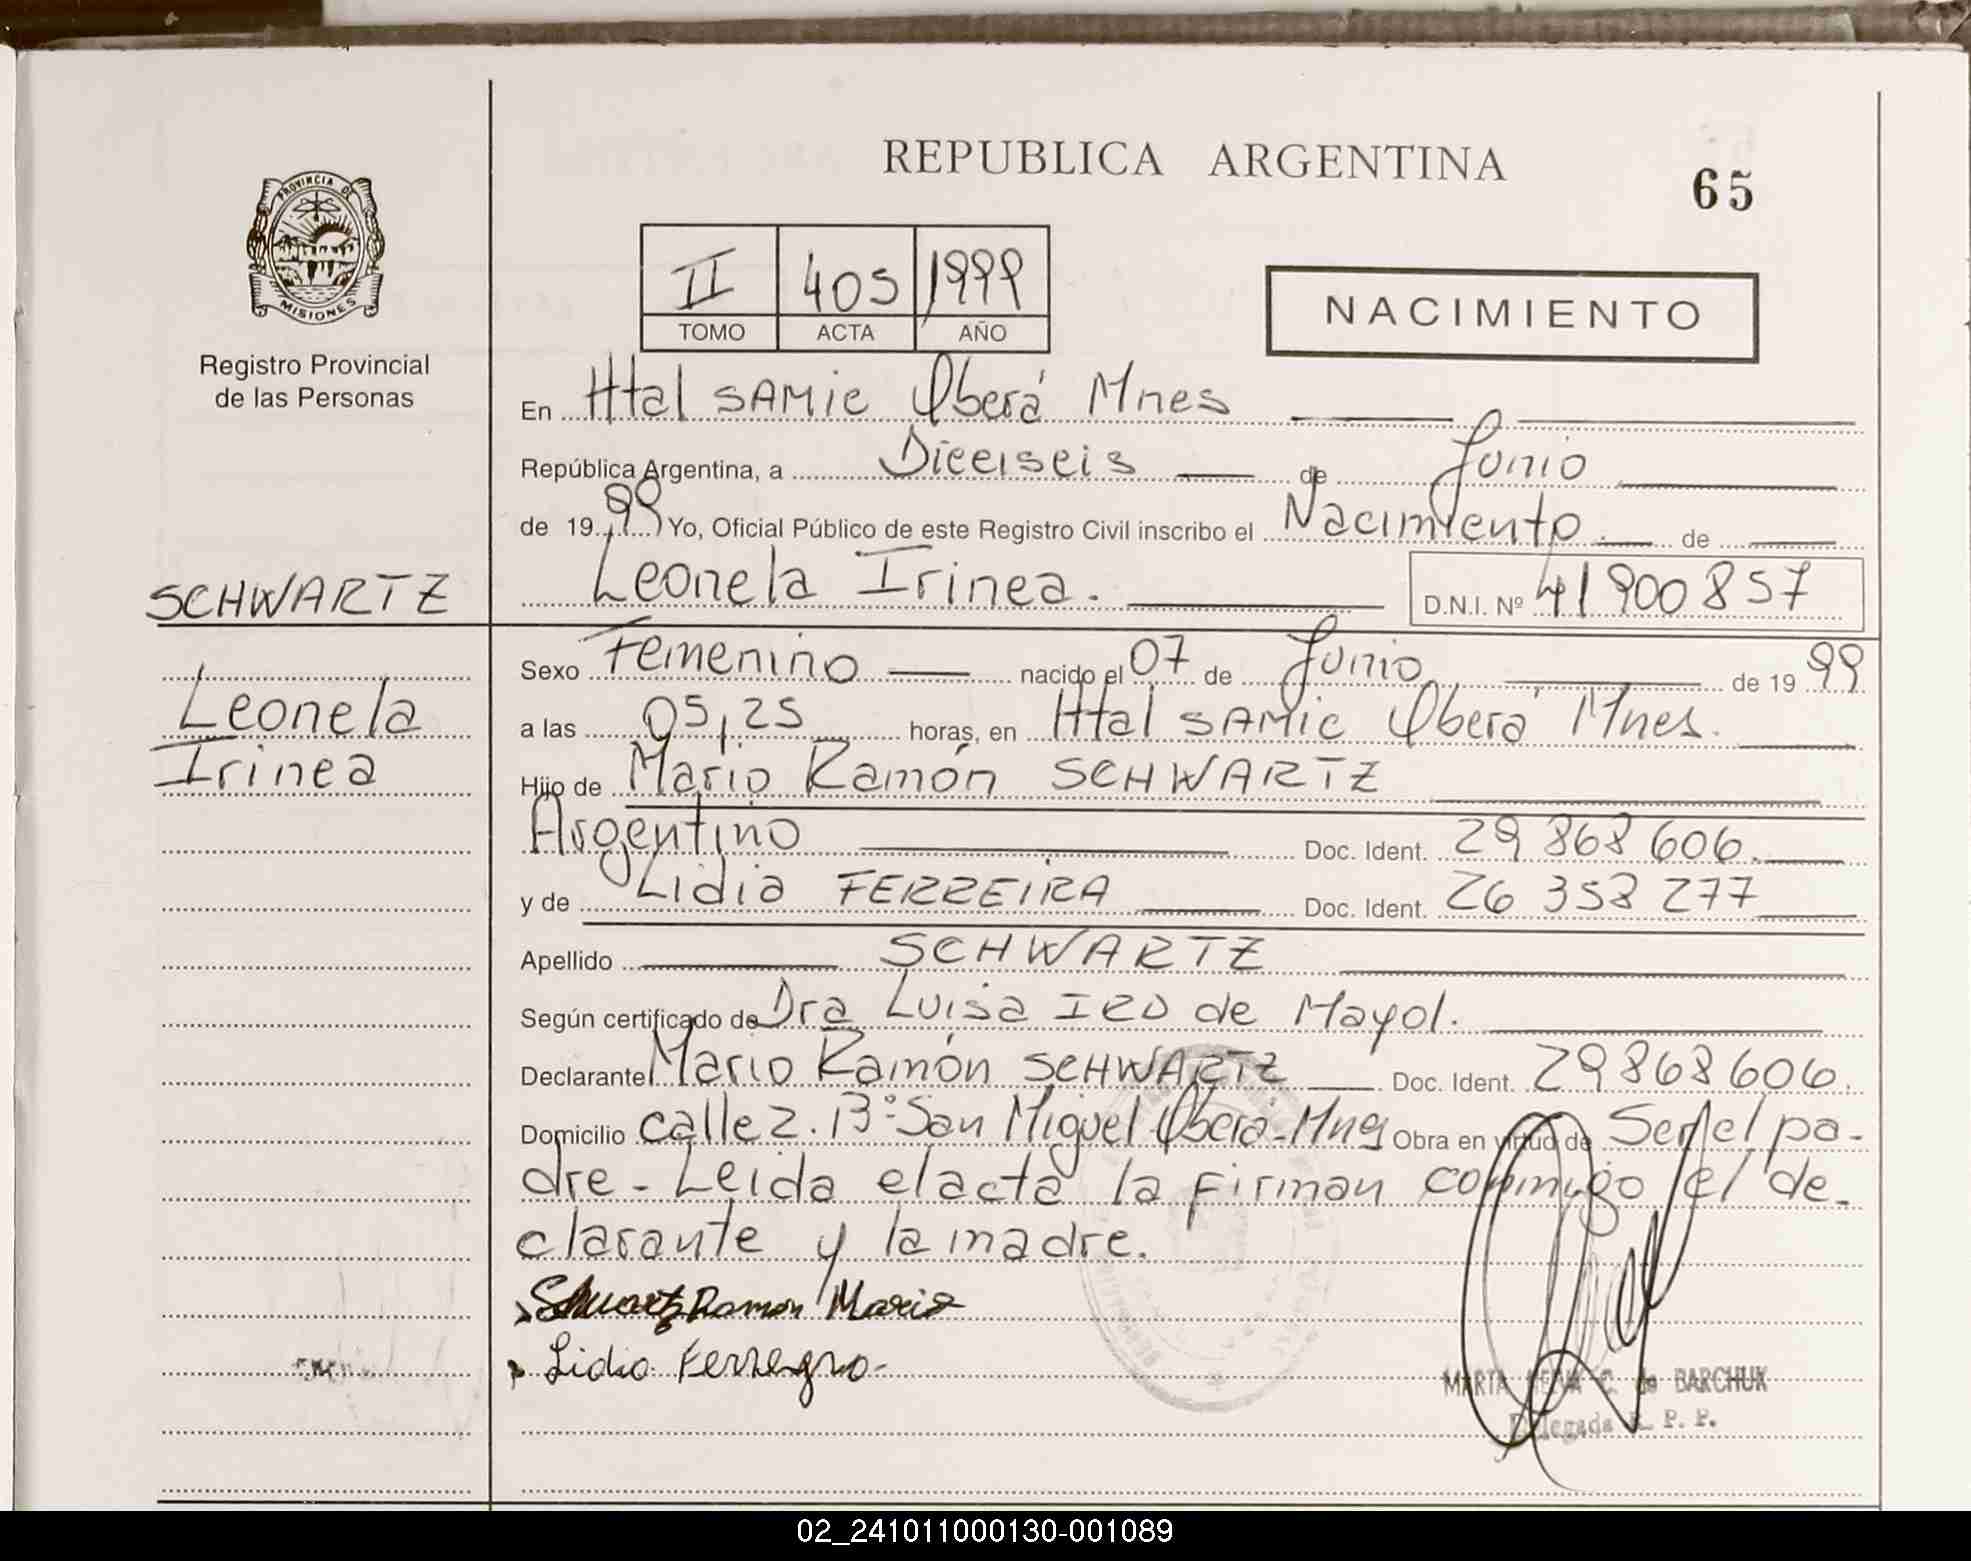 REPUBLICA ARGENTINA
65
PROVINCIA DE
MISIONES
Registro Provincial
de las Personas
II 405 1999
TOMO ACTA AÑO
NACIMIENTO
En Htal SAMIC Oberá Mnes
República Argentina, a Dieciseis de Junio
de 1999 Yo, Oficial Público de este Registro Civil inscribo el Nacimiento de
SCHWARTZ
Leonela Irinea. D.N.I. Nº 41900857
Leonela
Irinea
Sexo Femenino nacido el 07 de Junio de 1999
a las 05,25 horas, en Htal SAMIC Oberá Mnes.
Hijo de Mario Ramón SCHWARTZ
Argentino Doc. Ident. 29 868 606.
y de Lidia FERREIRA Doc. Ident. 26 358 277
Apellido SCHWARTZ
Según certificado de Dra Luisa de Mayol.
Declarante Mario Ramón SCHWARTZ Doc. Ident. 29868606.
Domicilio calle 2. Bº San Miguel Oberá-Mnes Obra en virtud de Ser el pa-
dre - Leida el acta la firman conmigo el de-
clarante y la madre.
Ramon Mario
Lidia
MARTA C. de BARCHUK
Delegada R. P. P.
02_241011000130-001089